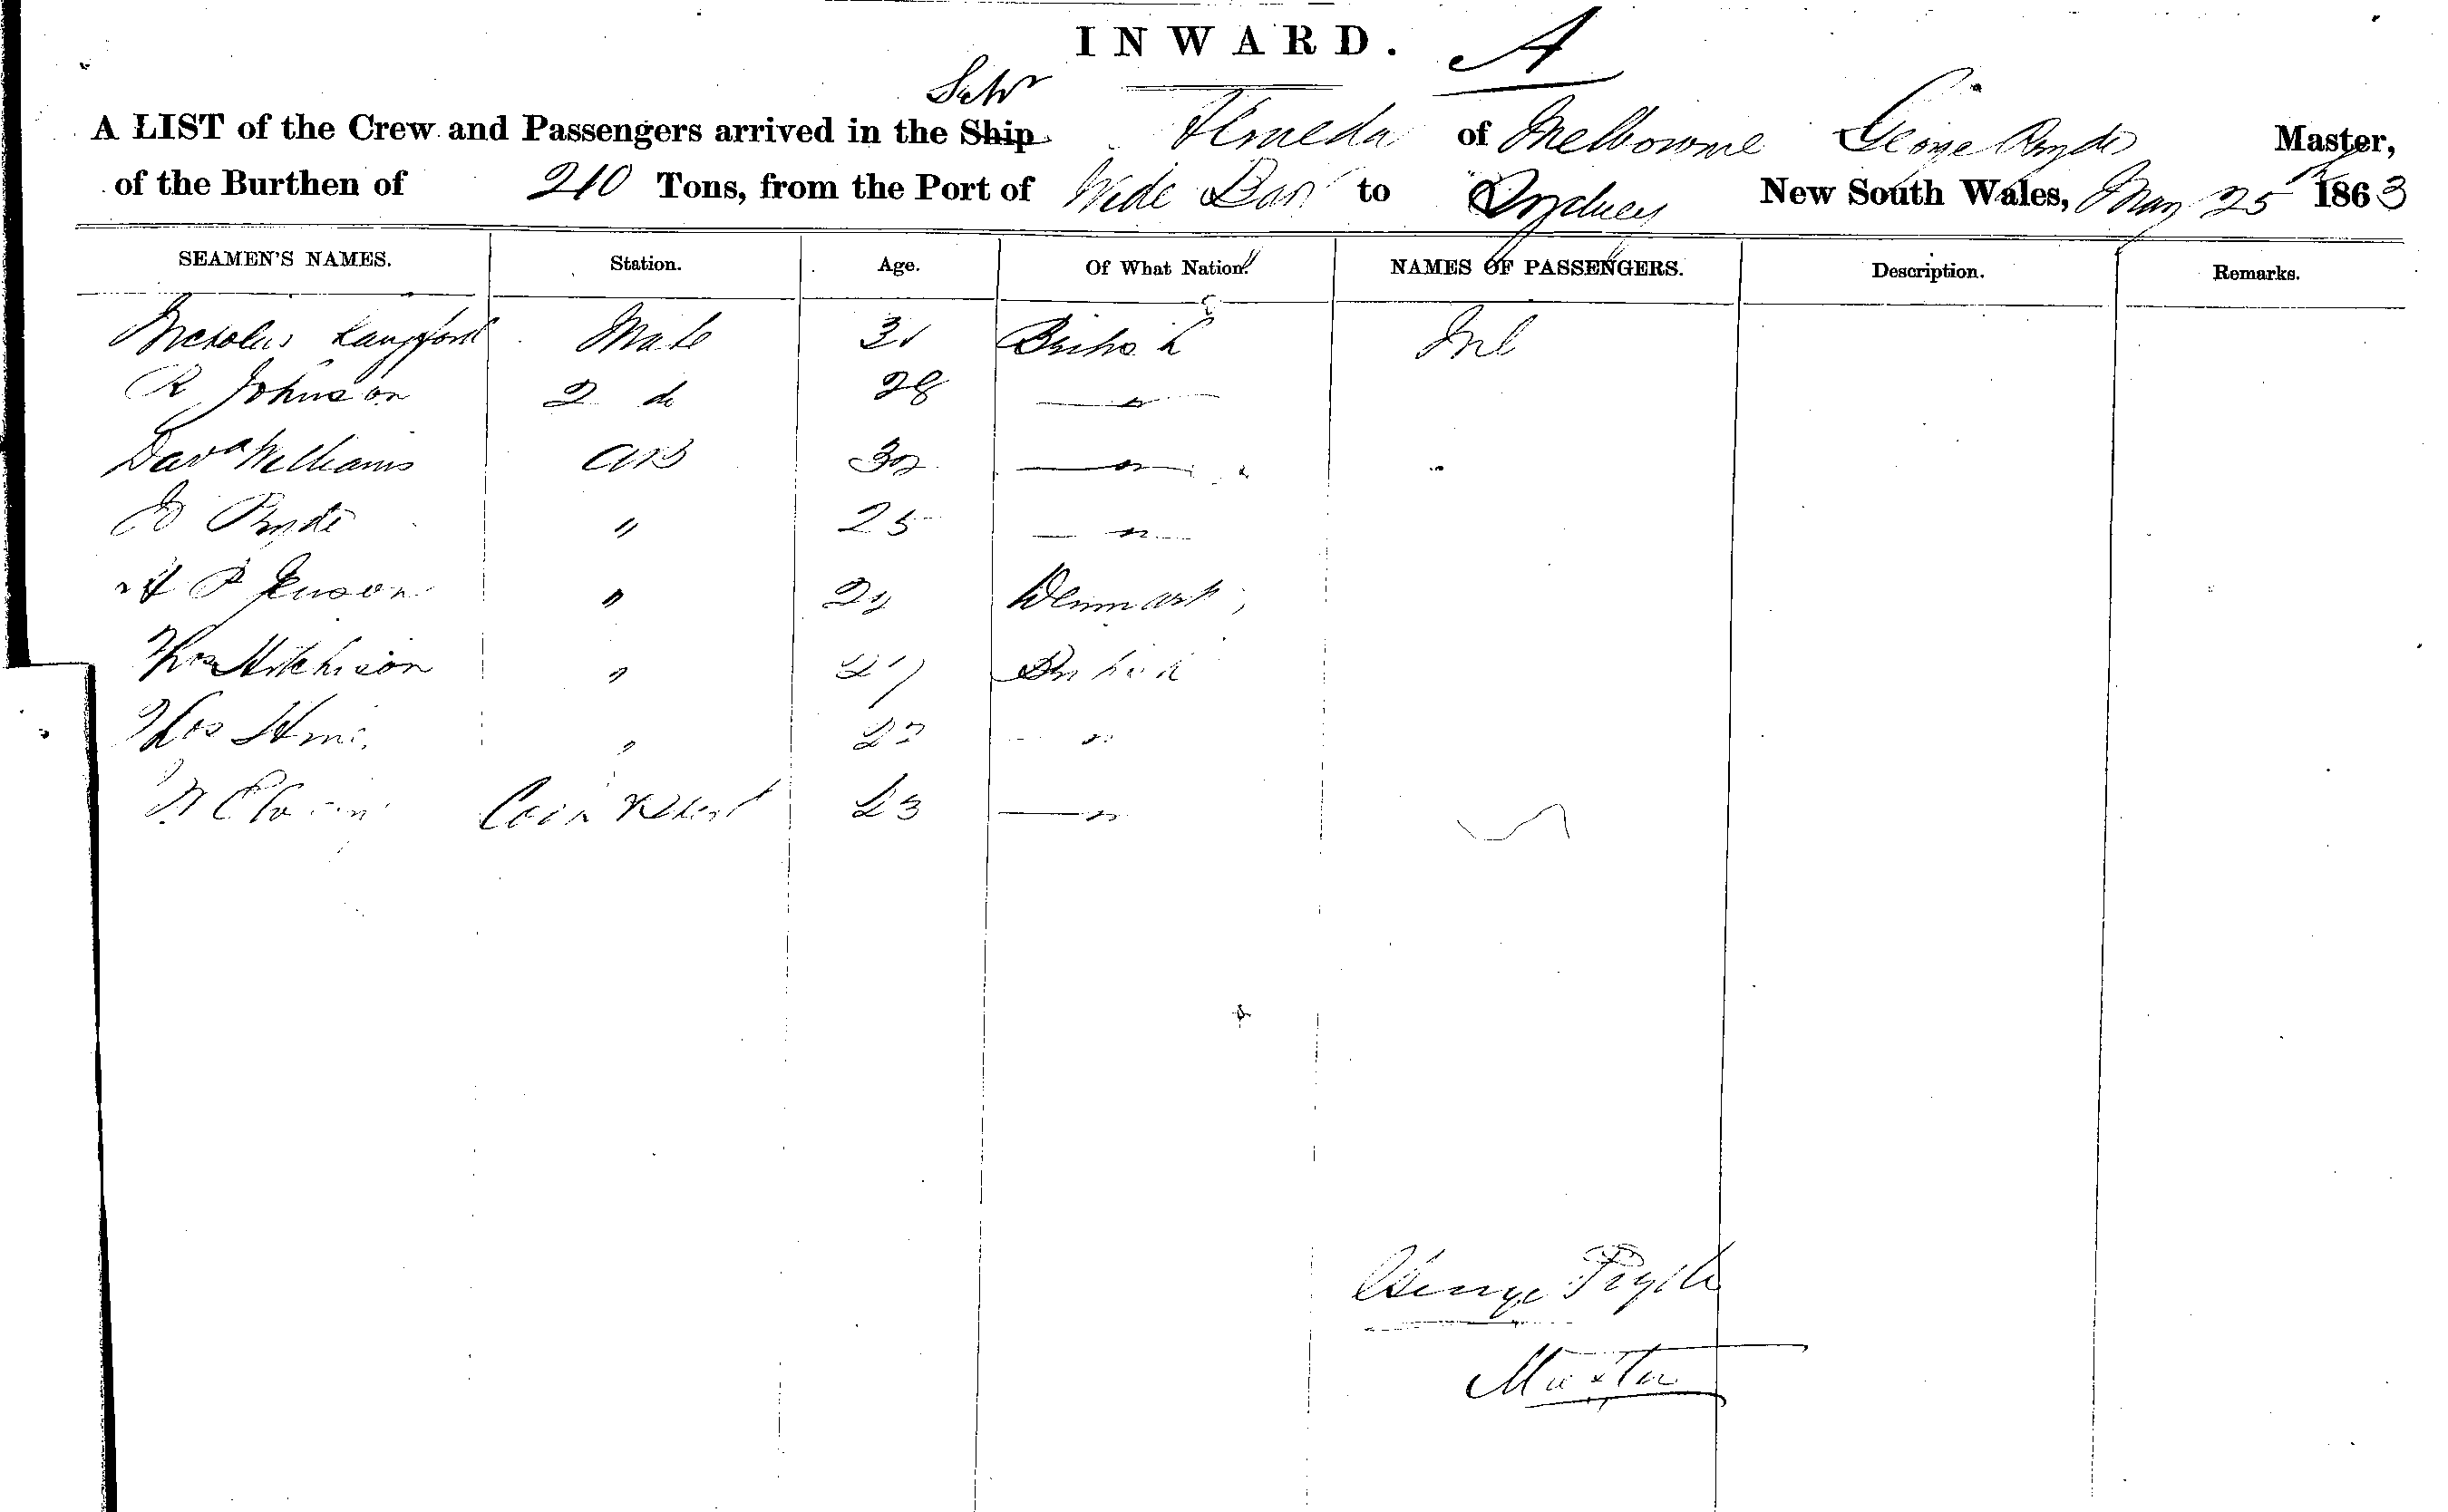 INWARD. A
Schr
A LIST of the Crew and Passengers arrived in the Ship of Melbourne George Pryde Master,
of the Burthen of 210 Tons, from the Port of Wide Bay to Sydney New South Wales, May 25 1863
SEAMEN'S NAMES. Station. Age. Of What Nation. NAMES OF PASSENGERS. Description. Remarks.
Nicholas Langford Mate 31 British Nil
R Johnson 2 do 28 — " —
Davd Williams AB 32 — " —
Pryde " 25 — " —
P Jenson " Denmark
Thos Hitchison " 27 British
Thos " "
Cook 23 — "
George Pryde
Master